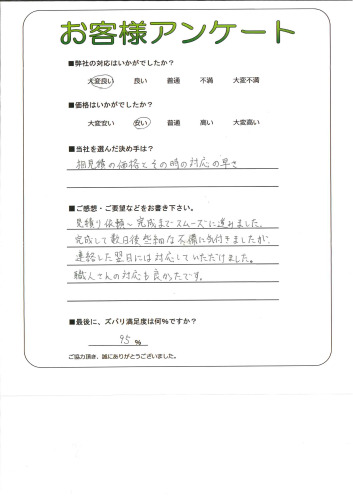 お客様アンケート
■弊社の対応はいかがでしたか？
大変良い 良い 普通 不満 大変不満
■価格はいかがでしたか？
大変安い 安い 普通 高い 大変高い
■当社を選んだ決め手は？
相見積の価格とその時の対応の早さ
■ご感想・ご要望などをお書き下さい。
見積り依頼～完成までスムーズに進みました。
完成して数日後些細な不備に気付きましたが、
連絡した翌日には対応していただけました。
職人さんの対応も良かったです。
■最後に、ズバリ満足度は何％ですか？
95 ％
ご協力頂き、誠にありがとうございました。